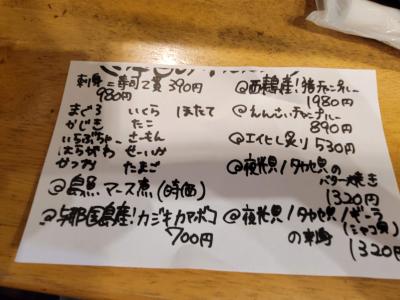 刺身 寿司2貫 390円
980円
まぐろ いくら ほたて
かじき たこ
いらぶちゃー さーもん
はちびき せーいか
かつお たまご
@島魚マース煮(時価)
@与那国島産!カジキカマボコ
700円
1980円
890円
@エイヒレ炙り 530円
@夜光貝/タカセ貝の
バター焼き
1320円
@夜光貝/タカセ貝/ギーラ
(シャコ貝)
の刺身
1320円